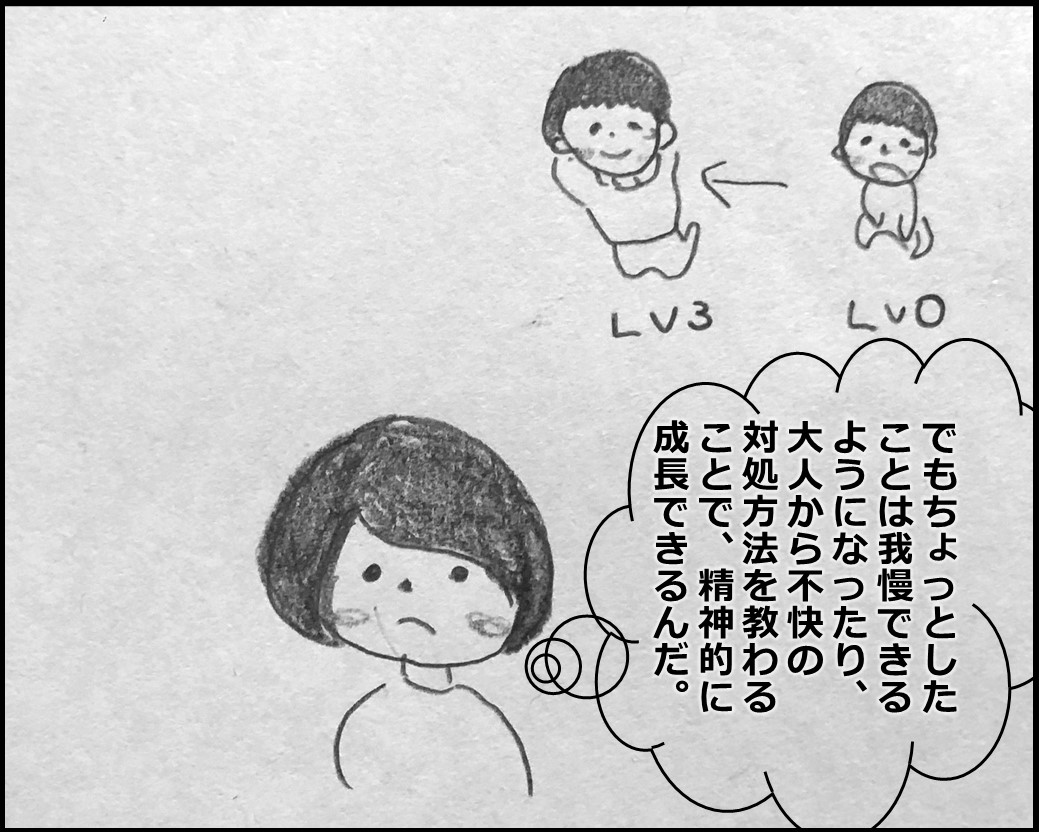 LV0
LV3
でもちょっとした
ことは我慢できる
ようになったり、
大人から不快の
対処方法を教わる
ことで、精神的に
成長できるんだ。